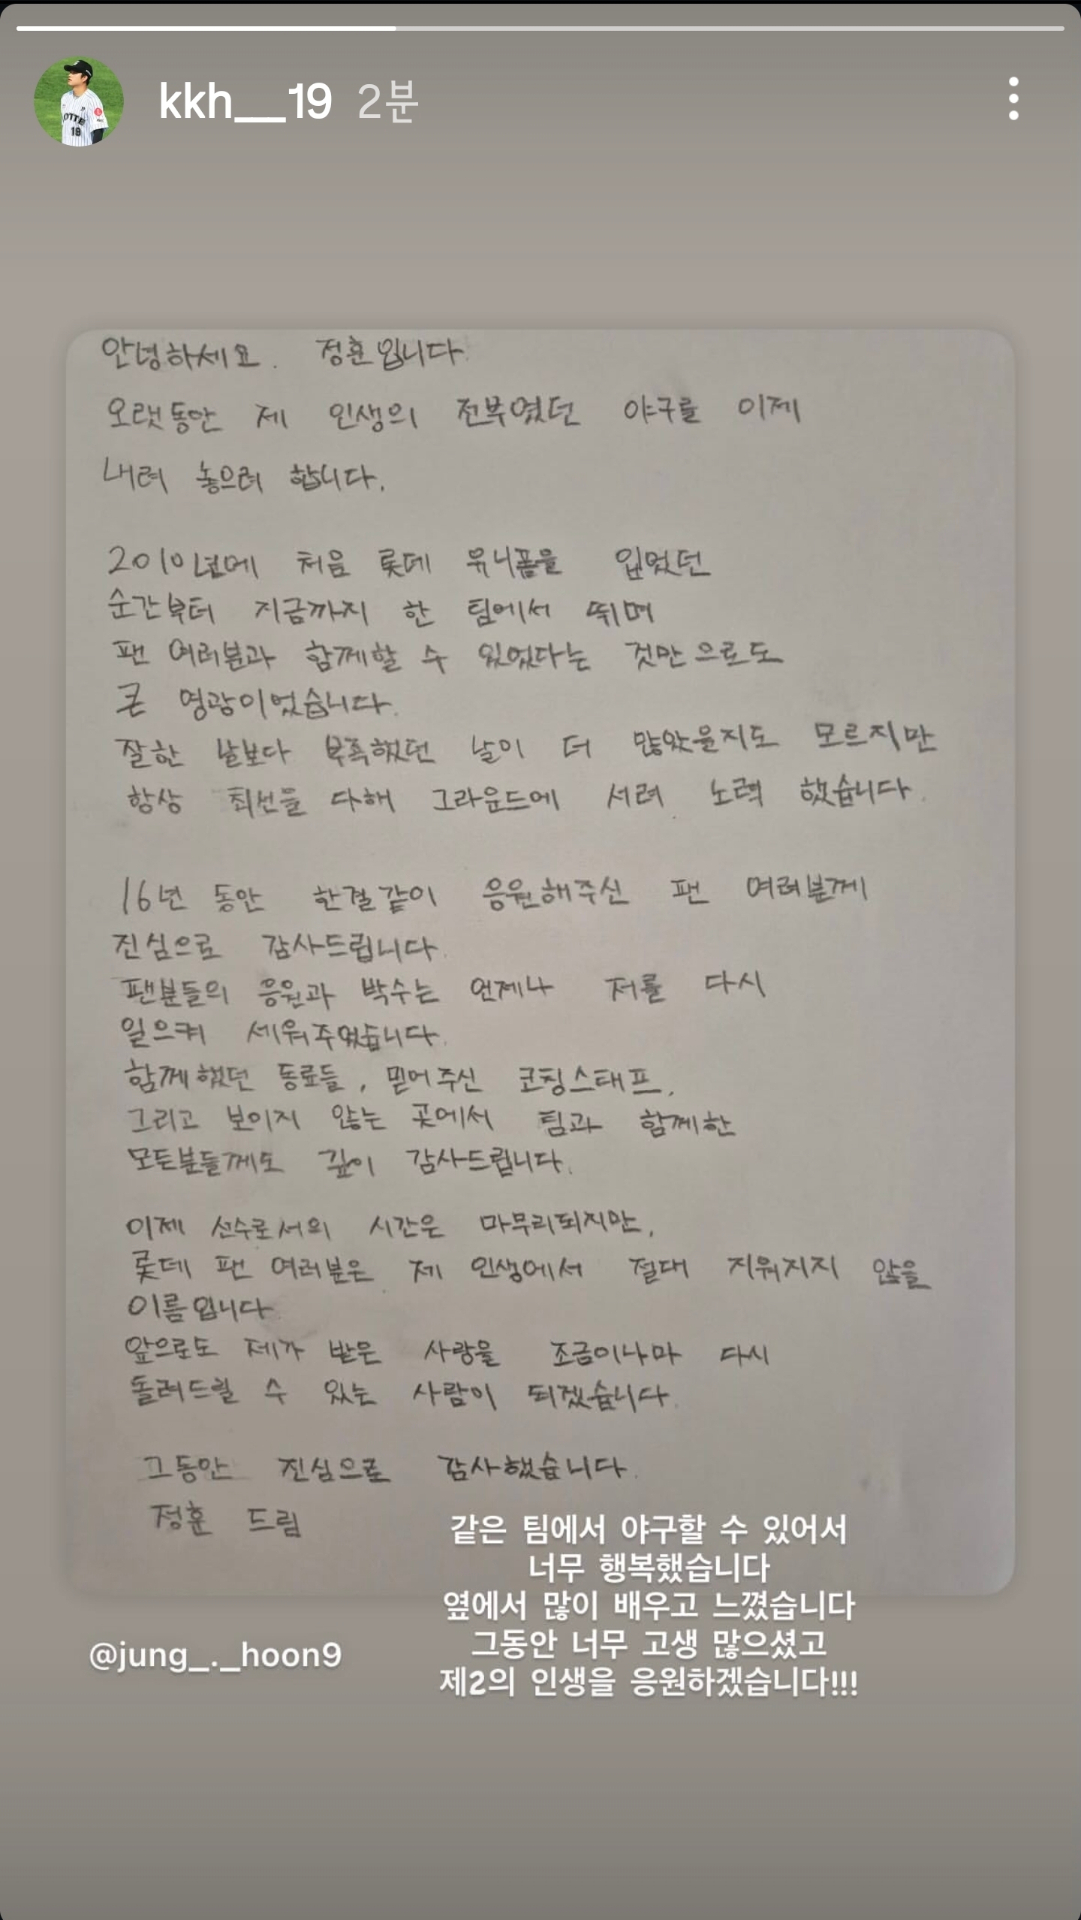 kkh__19 2분
안녕하세요. 정훈입니다.
오랫동안 제 인생의 전부였던 야구를 이제
내려 놓으려 합니다.
2010년에 처음 롯데 유니폼을 입었던
순간부터 지금까지 한 팀에서 뛰며
팬 여러분과 함께할 수 있었다는 것만으로도
큰 영광이었습니다.
잘한 날보다 부족했던 날이 더 많았을지도 모르지만
항상 최선을 다해 그라운드에 서려 노력 했습니다.
16년 동안 한결같이 응원해주신 팬 여러분께
진심으로 감사드립니다.
팬분들의 응원과 박수는 언제나 저를 다시
일으켜 세워주었습니다.
함께했던 동료들, 믿어주신 코칭스태프,
그리고 보이지 않는 곳에서 팀과 함께한
모든분들께도 깊이 감사드립니다.
이제 선수로서의 시간은 마무리되지만,
롯데 팬 여러분은 제 인생에서 절대 지워지지 않을
이름입니다.
앞으로도 제가 받은 사랑을 조금이나마 다시
돌려드릴 수 있는 사람이 되겠습니다.
그동안 진심으로 감사했습니다.
정훈 드림
같은 팀에서 야구할 수 있어서
너무 행복했습니다
옆에서 많이 배우고 느꼈습니다
그동안 너무 고생 많으셨고
제2의 인생을 응원하겠습니다!!!
@jung_._hoon9